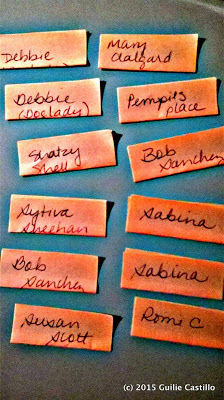 Debbie
Mary
Debbie
(Doglady)
Pempi's
place
Snatzy
Shell
Bob
Sanchez
Sytiva
Sheehan
Sabina
Bob
Sanchez
Sabina
Susan
Scott
Romi C
(c) 2015 Guilie Castillo